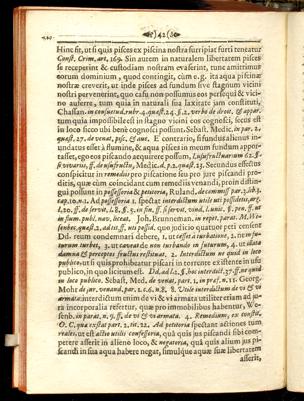 )42(
Hinc sit, ut si quis pisces ex piscina nostra surripiat furti teneatur
Const. Crim. art. 169. Sin autem in naturalem libertatem pisces
se receperint & custodiam nostram evaserint, tunc amittimus
eorum dominium, quod contingit, cùm e.g. ita aqua piscinæ
nostræ creverit, ut inde pisces ad fundum sive stagnum vicini
nostri pervenerint, quo casu non possumus eos persequi & vici-
no auferre, tum quia in naturali sua laxitate jam constituti,
Chassan. in consuetud. rubr. 4. quæst. 24. §. 2. verbo de droit. & appar.
tum quia impossibile est in stagno vicini eos cognosci, scire est
in loco sicco ubi benè cognosci possunt. Sebast. Medic. in par. 2.
quæst. 27. de venat, pisc. & auc. E contrario, si fundus alienus in-
undatus esset à flumine, & aqua pisces in meum fundum appor-
tasset, ego eos piscando acquirere possum, l. usufructuarum 62. ff.
& vivariis, ff. de usufructu, Medic. d. p. 2. quæst. 25. Secundus effectus
conspicitur in remediis pro piscatione seu pro jure piscandi pro-
ditis, quæ cùm coincidant cum remediis venandi, proin distin-
gui possunt in possessoria & petitoria, Ruland. de commiss. par. 3. lib. 5.
cap. 10. n. 2. Ad possessoria 1. spectat interdictum utile uti possidetis, arg.
l. 20. ff. de servit. l. 8. §. 5. in fin. ff. si servit. vind. l. unic. §. pen. ff. ut
in flum. publ. nav. liceat. Joh. Brunneman. in repet. parat. M. We-
senbec. quæst. 2. ad tit. ff. uti possid. quo judicio quatuor peti censent
Dd. reum condemnari debere, 1. ut cesset à turbatione, 2. item fu-
turum turbet, 3. ut caveat de non turbando in futurum, 4. ut illata
damna & perceptos fructus restituat. 2. Interdictum ne quid in loco
publico: ut si quis prohibeatur piscari in torrente existente in usu
publico, in quo licitum est. Dd. ad l. 2. §. hoc interdict. 27. ff. ne quid
in loco publico. Sebast. Med. de venat, part. 2. in præf. n. 15. Georg.
Mohr de jur. venand. part. 2. c. 6. n. 8. 8. Utile interdictum de vi & vi
armata: interdictum enim de vi & vi armata utiliter etiam ad ju-
ra incorporalia refertur, quæ pro immobilibus habentur, We-
senb. in parat. n. 9. ff. de vi & vi armata. 4. Remedium, ex constit.
O. C. qua exstat part. 2. tit. 22. Ad petitoria spectant actiones tum
reales, ut est actio utilis confessoria, quâ quis jus piscandi sibi com-
petere asserit in alieno loco, & negatoria, quâ quis alium jus pi-
scandi in sua aqua habere negat, simulque aquæ suæ libertatem
asserit,